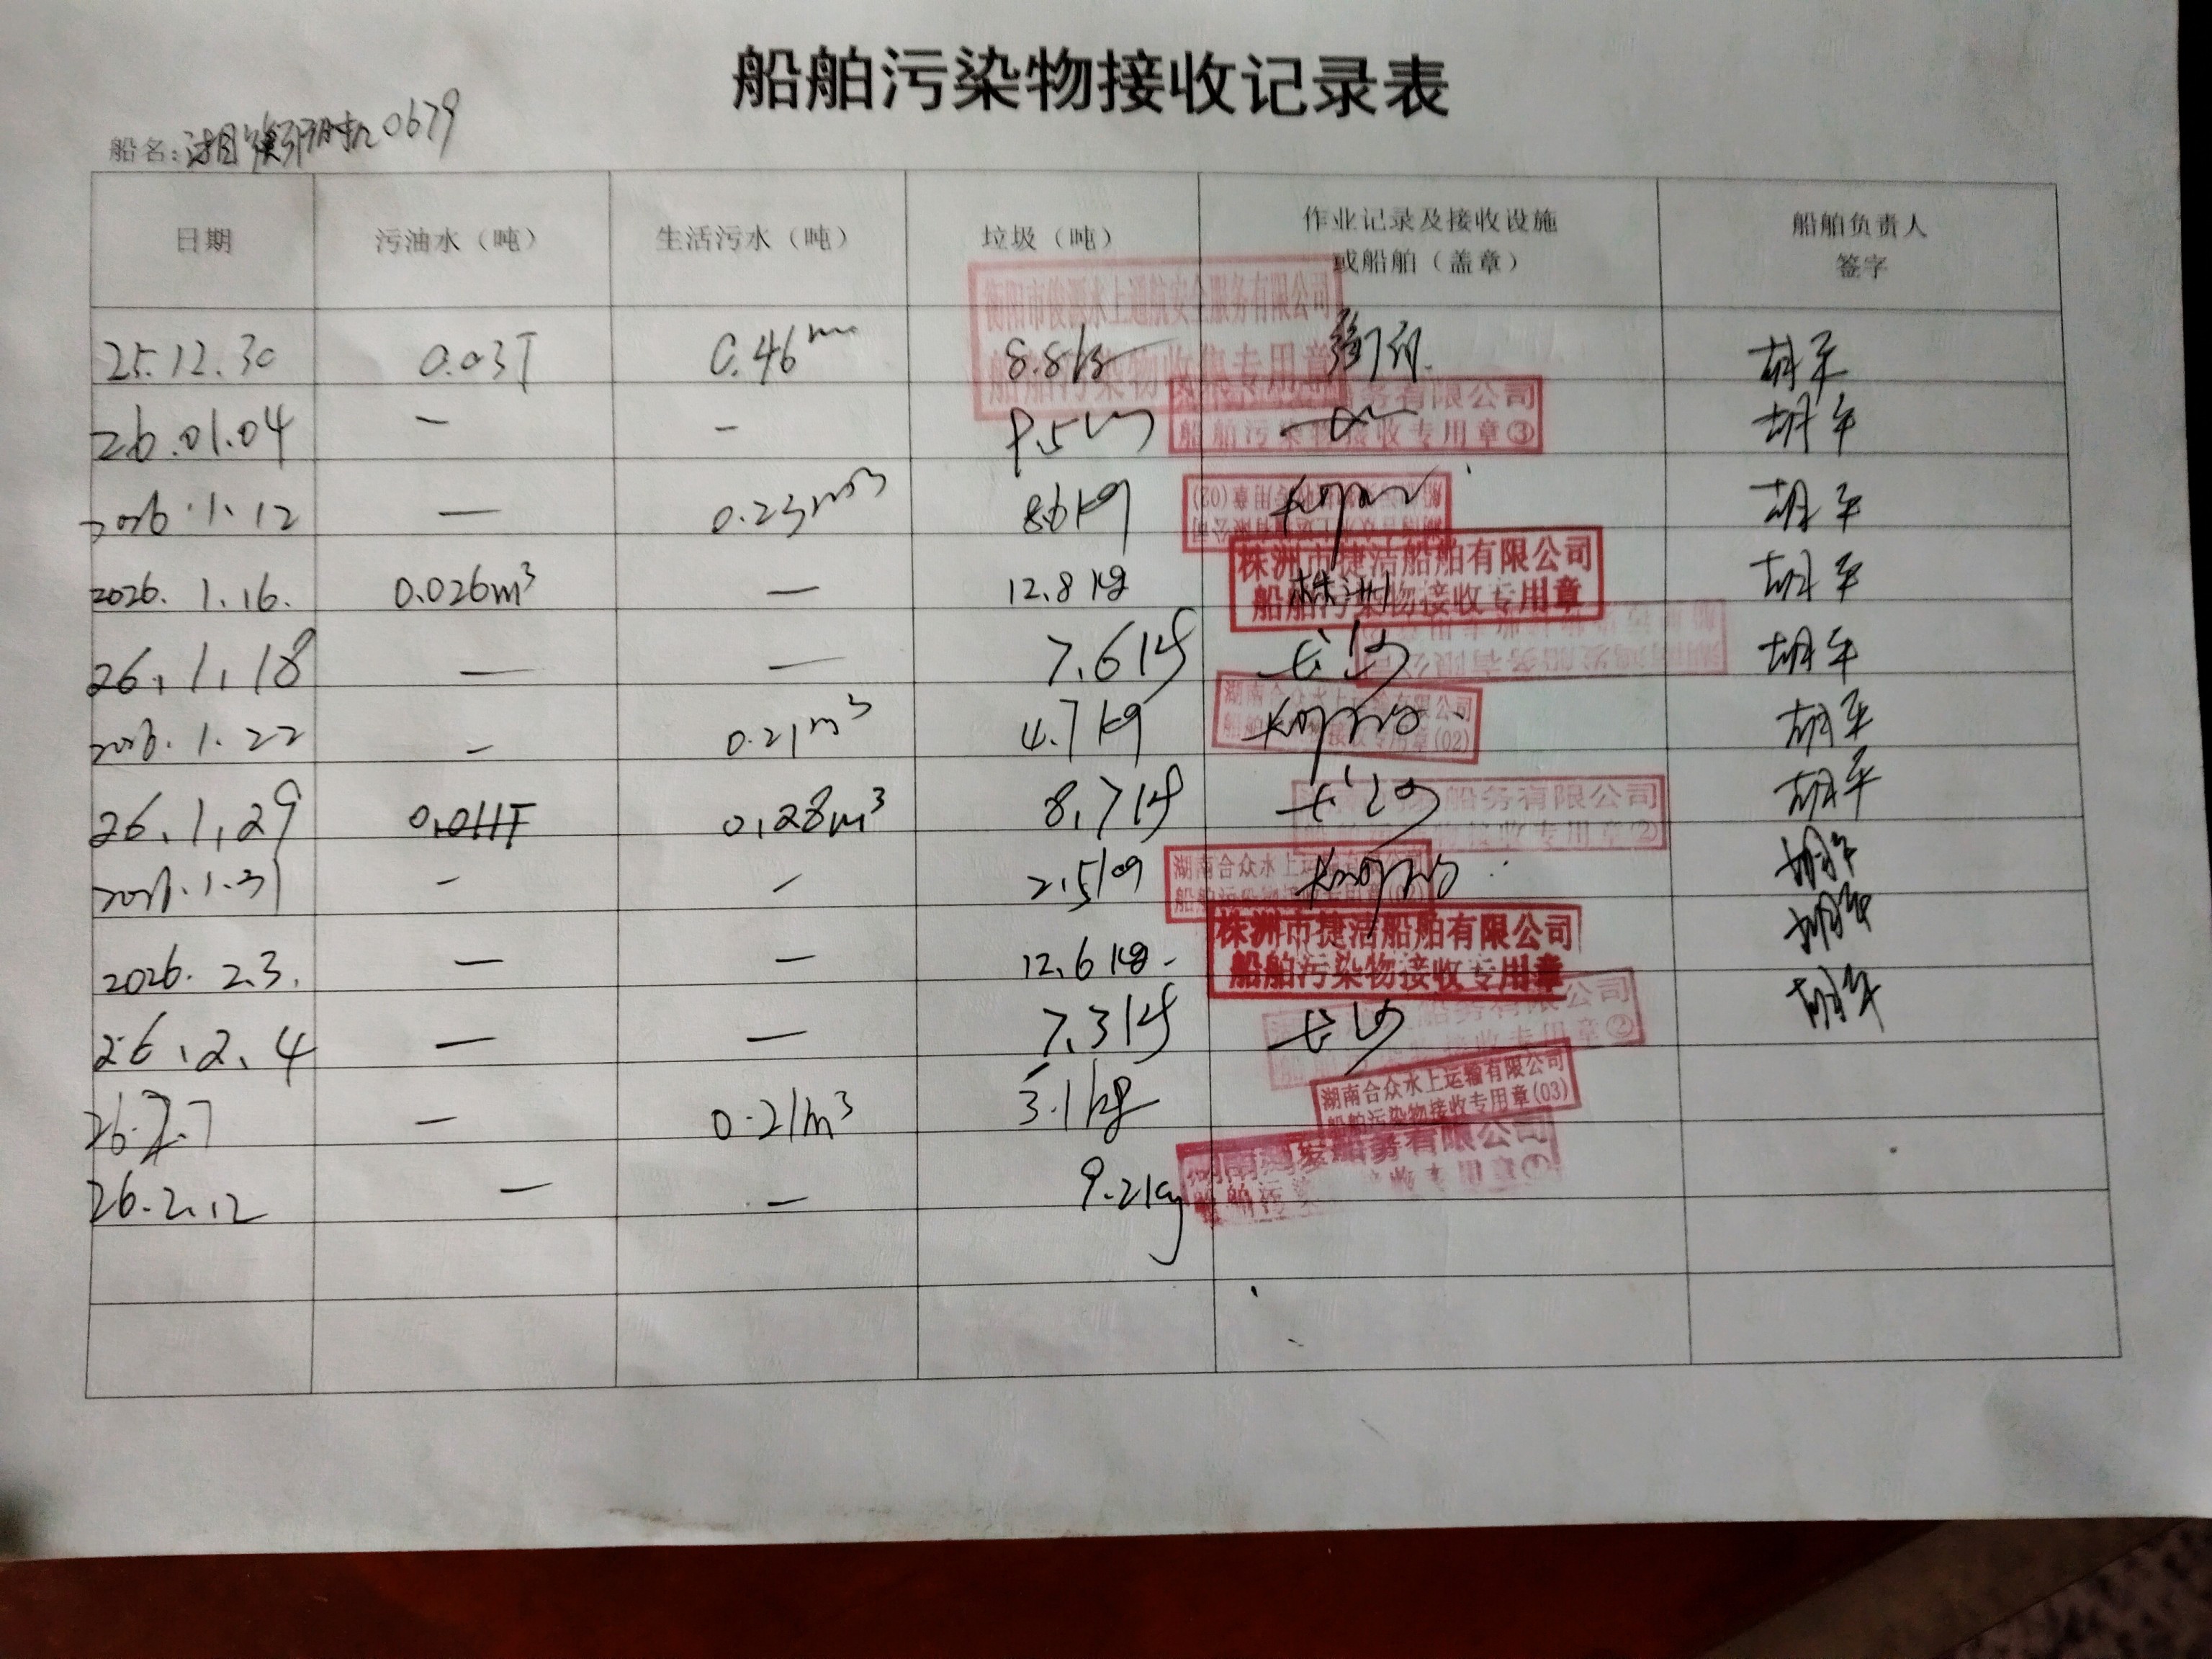 船舶污染物接收记录表
船名: 湘衡阳机0679
日期 污油水（吨） 生活污水（吨） 垃圾（吨） 作业记录及接收设施或船舶（盖章） 船舶负责人签字
衡阳市俊源水上通航安全服务有限公司
船舶污染物收集专用章
25.12.30 0.03T 0.46m 8.8kg 衡阳 胡平
务有限公司
船舶污染物接收专用章③
26.01.04 — — 胡平
2026.1.12 — 0.23m3 8.6kg 胡平
株洲市捷洁船舶有限公司
船舶污染物接收专用章
2026.1.16. 0.026m³ — 12.8kg 株洲 胡平
26.1.18 — — 7.6kg 长沙 胡平
湖南合众水上运输有限公司
船舶污染物接收专用章(02)
2026.1.22 — 0.21m³ 4.7kg 胡平
船务有限公司
接收专用章②
26.1.29 0.011T 0.28m³ 8.7kg 长沙 胡平
湖南合众水上运
2026.1.31 — — 2.5kg 胡平
株洲市捷洁船舶有限公司
船舶污染物接收专用章
2026.2.3. — — 12.6kg. 胡平
船务有限公司
接收专用章②
26.2.4 — — 7.3kg 长沙 胡平
湖南合众水上运输有限公司
船舶污染物接收专用章(03)
26.2.7 — 0.21m³ 3.1kg
船务有限公司
26.2.12 — — 9.2kg